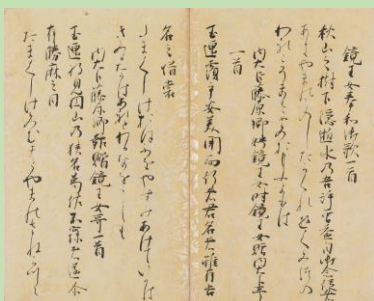 鏡王女奉和御歌一首
秋山之樹下隠逝水乃吾許曽益目御念
あきやまのしたかくれゆくみつの
われこそまさめ
内大臣藤原卿娉鏡王女時鏡王女贈内大臣
一首
玉匣覆安美開而行者君名者雖有吾
名之惜裳
たまくしけおほふをやすみあけていなは
きみかなはあれとわかなしをしも
内大臣藤原卿報贈鏡王女哥一首
玉匣将見圓山乃狭名葛佐不寐者遂尓
有勝麻之目
たまくしけみむろとやまのさねかつら